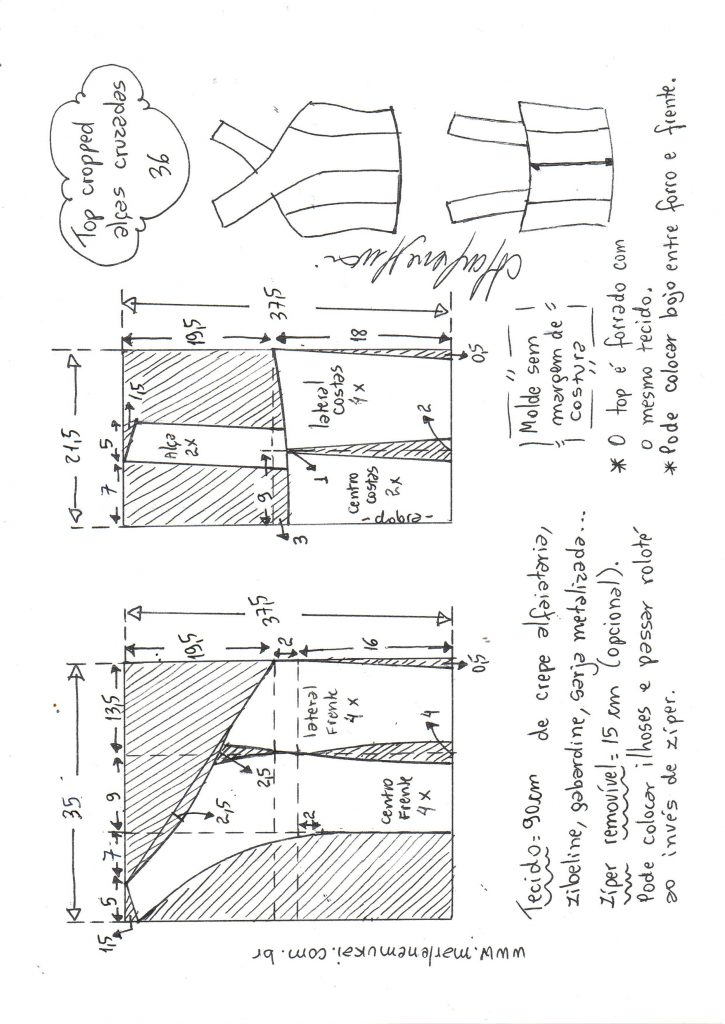 Top cropped
alças cruzadas
36
35
5
7
9
13,5
1,5
2,5
2,5
19,5
2
16
37,5
2
centro
Frente
4x
lateral
Frente
4x
4
0,5
21,5
7
5
1,5
Alça
2x
19,5
18
37,5
3
9
1
centro
costas
2x
-ziper-
lateral
costas
4x
2
0,5
Molde sem
margem de
costura
Tecido = 90cm de crepe alfaiataria,
zibeline, gabardine, sarja metalizada...
Zíper removível = 15 cm (opcional).
Pode colocar ilhoses e passar roloté
ao invés de zíper.
* O top é forrado com
o mesmo tecido.
* Pode colocar bojo entre forro e frente.
www.marlenemukai.com.br